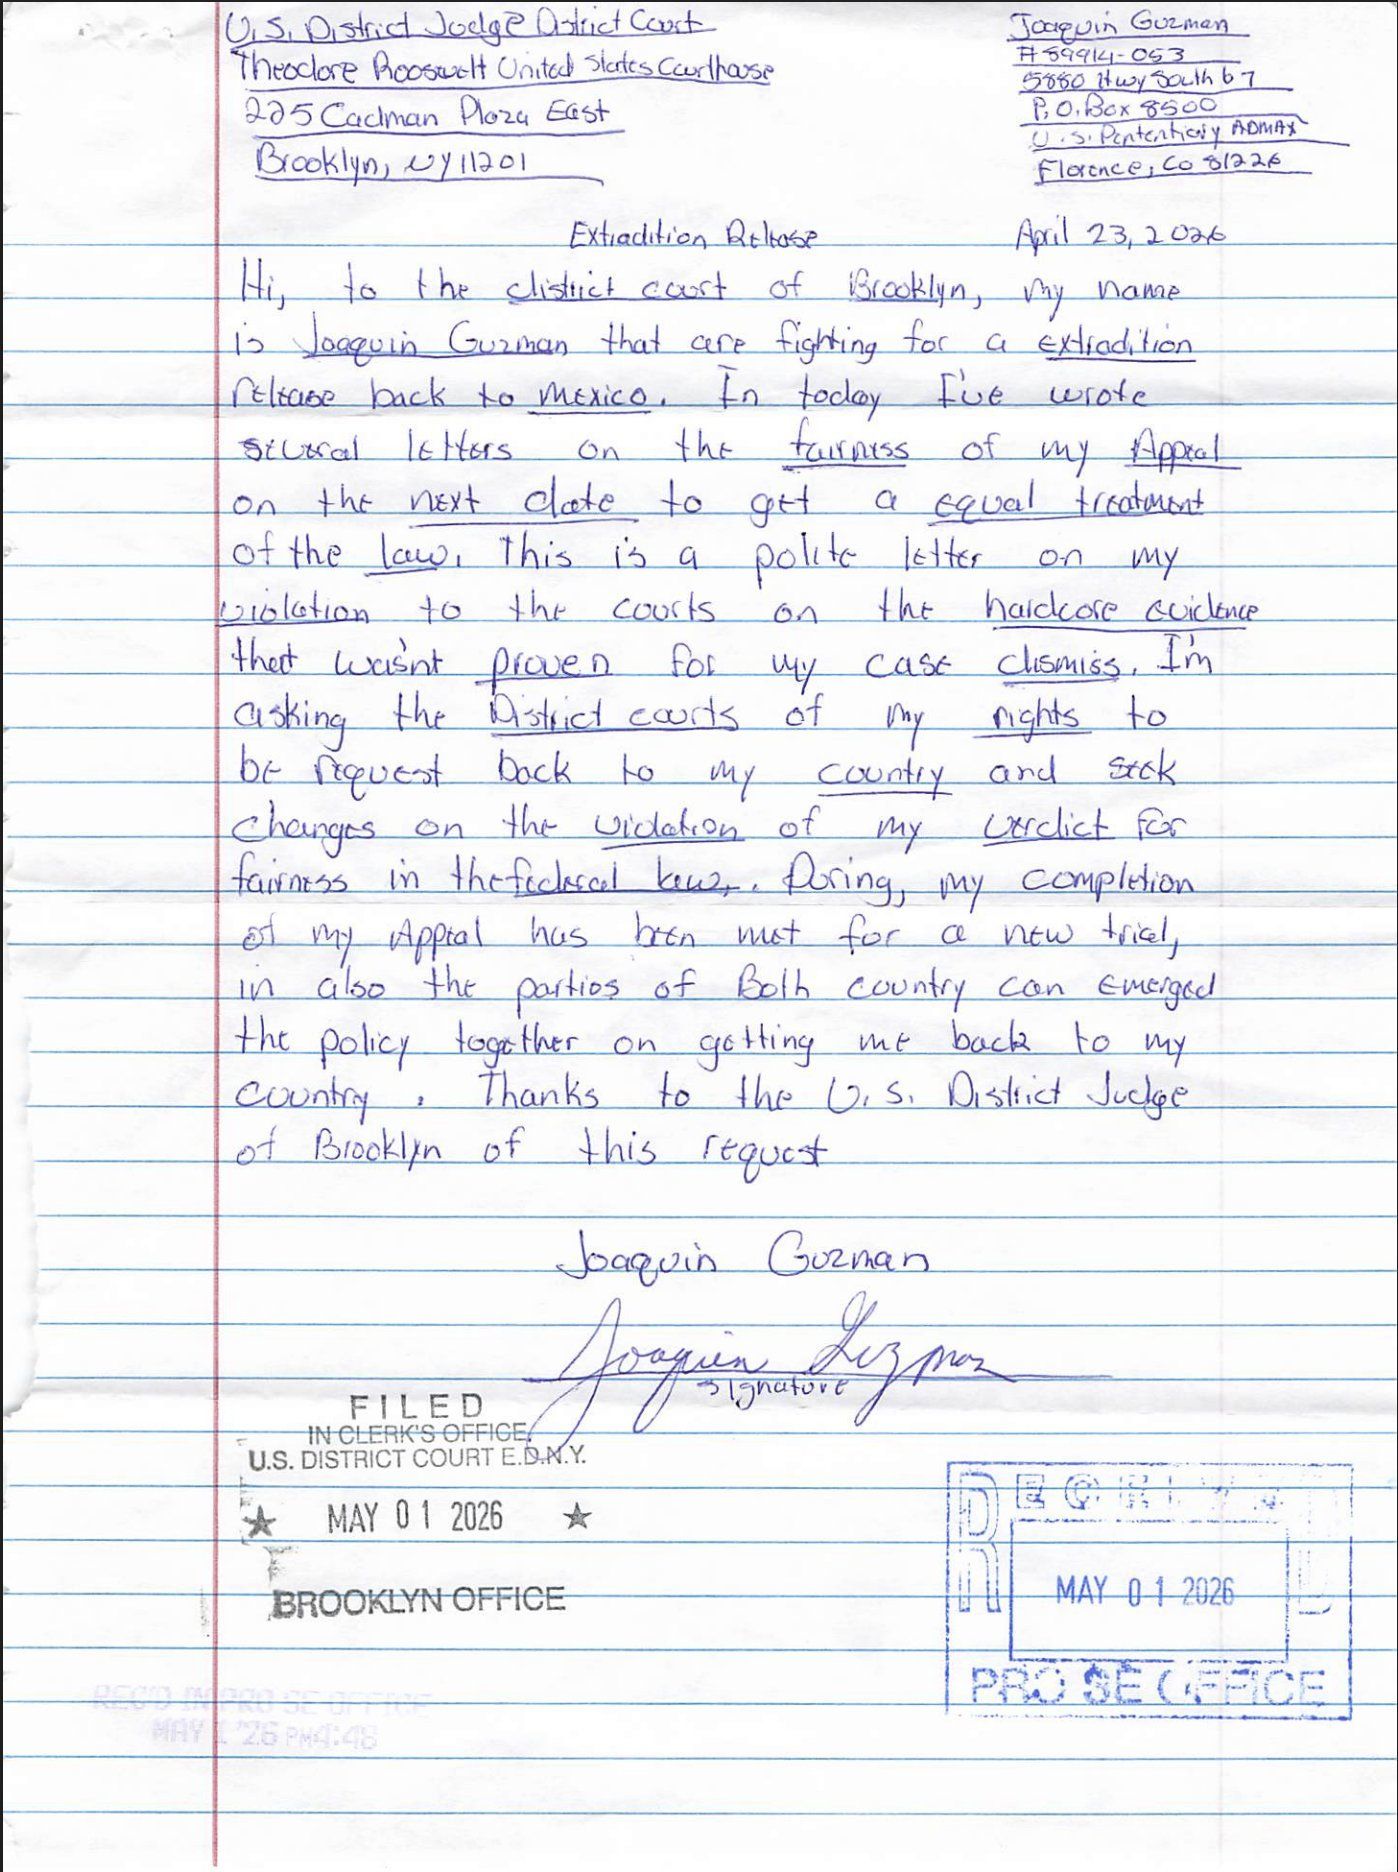 U.S. District Judge District Court
Theodore Roosevelt United States Courthouse
225 Cadman Plaza East
Brooklyn, NY 11201
Joaquin Guzman
# 89914-053
5880 Hwy South 67
P.O. Box 8500
U.S. Pententiary ADMAX
Florence, Co 81226
Extradition Release April 23, 2026
Hi, to the district court of Brooklyn, my name
is Joaquin Guzman that are fighting for a extradition
release back to Mexico. In today I've wrote
several letters on the fairness of my Appeal
on the next date to get a equal treatment
of the law. This is a polite letter on my
violation to the courts on the hardcore evidence
that was'nt proven for my case dismiss. I'm
asking the District courts of my rights to
be request back to my country and seek
changes on the violation of my verdict for
fairness in the federal law. During, my completion
of my Appeal has been met for a new trial,
in also the parties of Both country can emerged
the policy together on getting me back to my
country. Thanks to the U.S. District Judge
of Brooklyn of this request
Joaquin Guzman
Joaquin Guzman
signature
FILED
IN CLERK'S OFFICE
U.S. DISTRICT COURT E.D.N.Y.
★ MAY 01 2026 ★
BROOKLYN OFFICE
RECEIVED
MAY 01 2026
PRO SE OFFICE
REC'D IN PRO SE OFFICE
MAY 1 '26 PM4:48